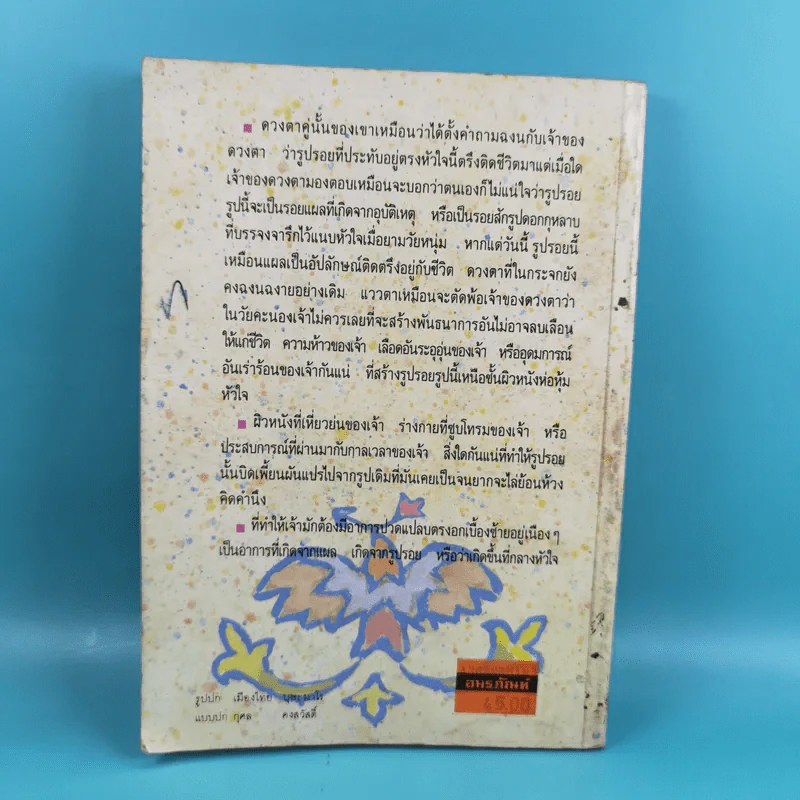 ■ ดวงตาคู่นั้นของเขาเหมือนว่าได้ตั้งคำถามฉงนกับเจ้าของ
ดวงตา ว่ารูปรอยที่ประทับอยู่ตรงหัวใจนี้ตรึงติดชีวิตมาแต่เมื่อใด
เจ้าของดวงตามองตอบเหมือนจะบอกว่าตนเองก็ไม่แน่ใจว่ารูปรอย
รูปนี้จะเป็นรอยแผลที่เกิดจากอุบัติเหตุ หรือเป็นรอยสักรูปดอกกุหลาบ
ที่บรรจงจารึกไว้แนบหัวใจเมื่อยามวัยหนุ่ม หากแต่วันนี้ รูปรอยนี้
เหมือนแผลเป็นอัปลักษณ์ติดตรึงอยู่กับชีวิต ดวงตาที่ในกระจกยัง
คงฉงนฉงายอย่างเดิม แววตาเหมือนจะตัดพ้อเจ้าของดวงตาว่า
ในวัยคะนองเจ้าไม่ควรเลยที่จะสร้างพันธนาการอันไม่อาจลบเลือน
ให้แก่ชีวิต ความห้าวของเจ้า เลือดอันระอุอุ่นของเจ้า หรืออุดมการณ์
อันเร่าร้อนของเจ้ากันแน่ ที่สร้างรูปรอยรูปนี้เหนือชั้นผิวหนังห่อหุ้ม
หัวใจ
■ ผิวหนังที่เหี่ยวย่นของเจ้า ร่างกายที่ซูบโทรมของเจ้า หรือ
ประสบการณ์ที่ผ่านมากับกาลเวลาของเจ้า สิ่งใดกันแน่ที่ทำให้รูปรอย
นั้นบิดเพี้ยนผันแปรไปจากรูปเดิมที่มันเคยเป็นจนยากจะไล่ย้อนห้วง
คิดคำนึง
■ ที่ทำให้เจ้ามักต้องมีอาการปวดแปลบตรงอกเบื้องซ้ายอยู่เนืองๆ
เป็นอาการที่เกิดจากแผล เกิดจากรูปรอย หรือว่าเกิดขึ้นที่กลางหัวใจ
รูปปก เมืองไทย
แบบปก กุศล คงสวัสดิ์
อนรภัณฑ์
45.00